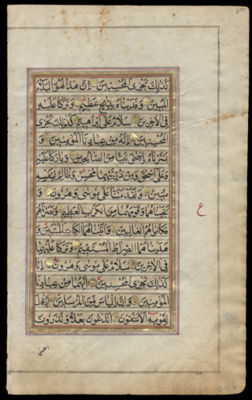 كذلك نجزي المحسنين إن هذا لهو البلاء
المبين وفديناه بذبح عظيم وتركنا عليه
في الآخرين سلام على إبراهيم كذلك نجزي
المحسنين إنه من عبادنا المؤمنين و
بشرناه بإسحق نبيا من الصالحين وباركنا عليه
وعلى إسحق ومن ذريتهما محسن وظالم لنفسه
مبين ولقد مننا على موسى وهرون و
نجيناهما وقومهما من الكرب العظيم ونصرناهم
فكانوا هم الغالبين وآتيناهما الكتاب المستبين و
هديناهما الصراط المستقيم وتركنا عليهما
في الآخرين سلام على موسى وهرون إنا
كذلك نجزي المحسنين إنهما من عبادنا
المؤمنين وإن إلياس لمن المرسلين إذ قال
لقومه ألا تتقون أتدعون بعلا وتذرون
ع